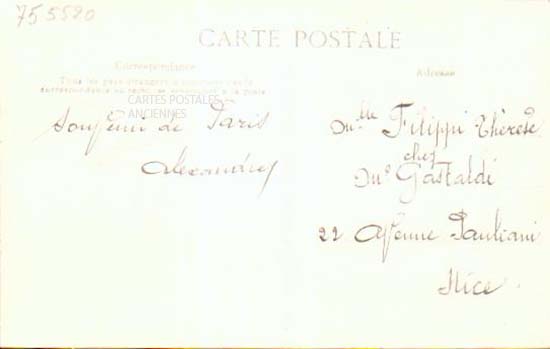 755520
CARTE POSTALE
Correspondance
Tous les pays étrangers n'acceptent pas la
correspondance au recto, se renseigner à la poste
CARTES POSTALES
ANCIENNES
Souvenir de Paris
Alexandrey
Adresse
Mlle Filippi Thérèse
chez
Me Gastaldi
22 Avenue Pauliani
Nice